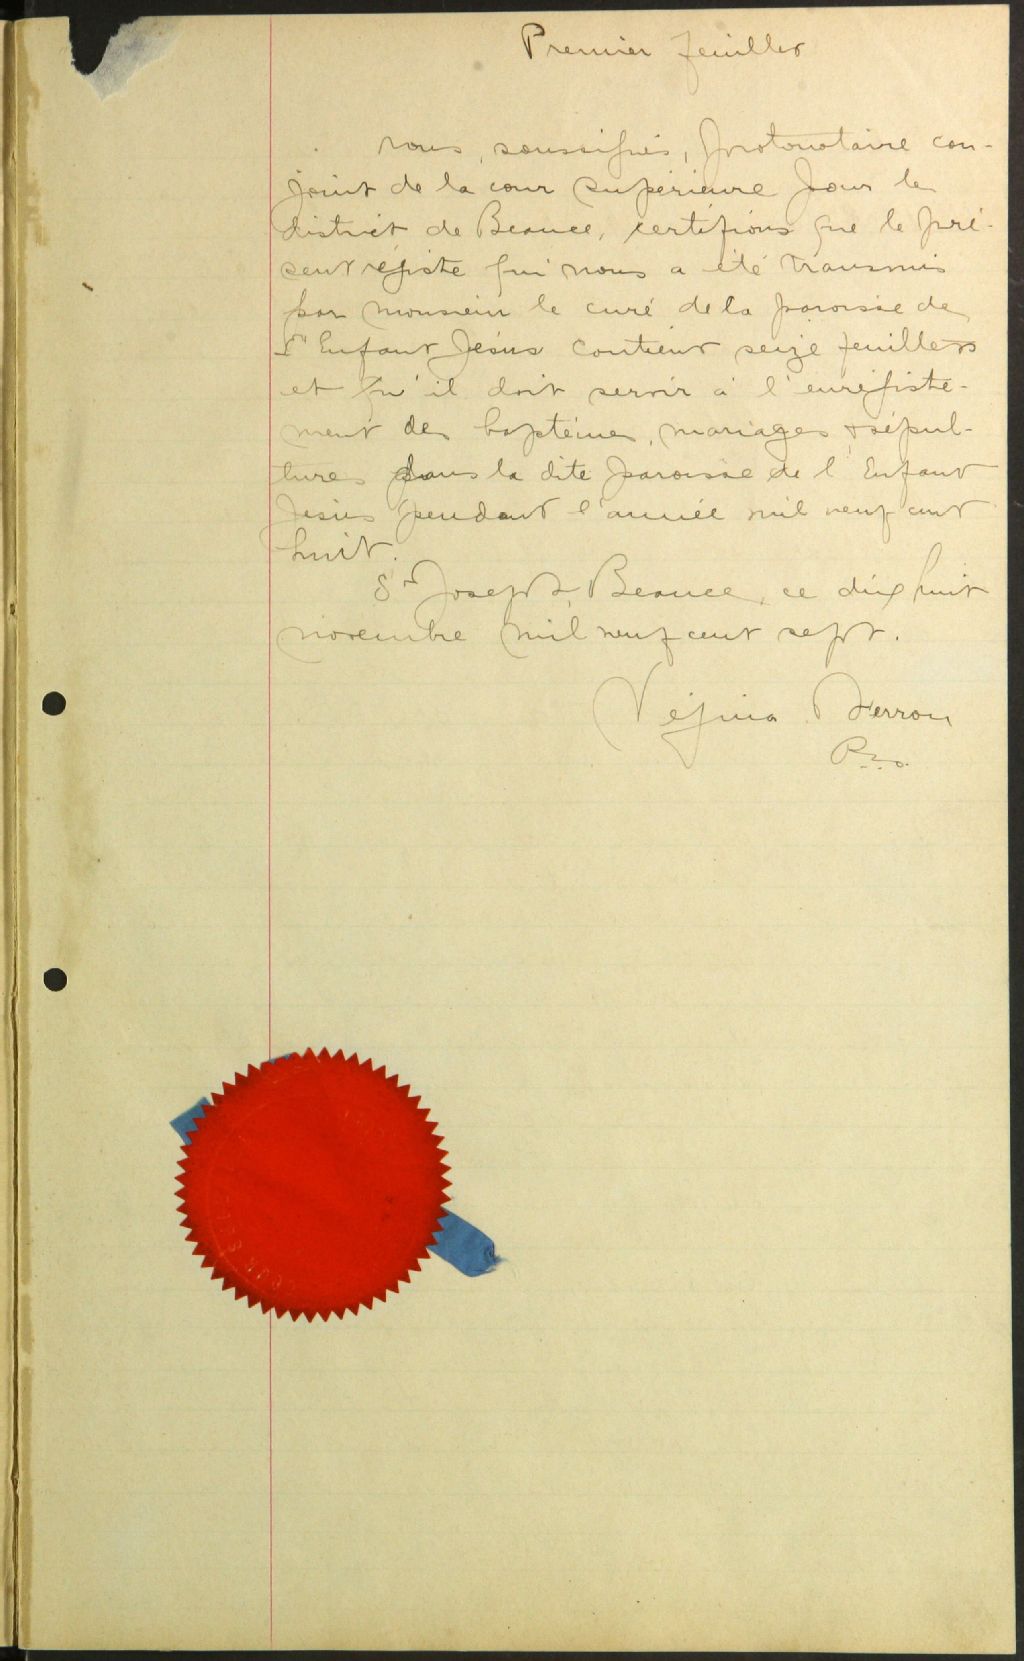 Premier feuillet
nous, soussignés, protonotaire con-
joint de la cour supérieure pour le
district de Beauce, certifions que le pré-
sent régistre qui nous a été transmis
par monsieur le curé de la paroisse de
l'Enfant Jésus contient seize feuillets
et qu'il doit servir à l'enrégistre-
ment des baptêmes, mariages & sépul-
tures dans la dite paroisse de l'Enfant
Jésus pendant l'année mil neuf cent
huit.
St Joseph, Beauce, ce dix huit
novembre mil neuf cent sept.
Vézina